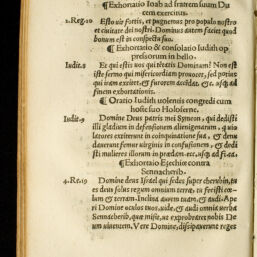 ¶Exhortatio Ioab ad fratrem suum Du
cem exercitus.
2.Reg.10 Esto vir fortis, et pugnemus pro populo nostro
et ciuitate dei nostri: Dominus autem faciet quod
bonum est in conspectu suo.
¶Exhortatio & consolatio Iudith op
pressorum in bello.
Iudit.8 Et qui estis vos qui tētatis Dominum? Non est
iste sermo qui misericordiam prouocet, sed potius
qui iram excitet, & furorem accēdat. &c. usq; ad
finem exhortationis.
¶Oratio Iudith uolentis congredi cum
hoste suo Holoferne.
Iudit.9 Domine Deus patris mei Symeon, qui dedisti
illi gladium in defensionem alienigenarum, qui uio
latores extiterunt in coinquinatione sua, & denu
dauerunt femur virginis in confusionem, & dedi
sti mulieres illorum in prædam. &c. usq; ad fi.ca.
¶Exhortatio Ezechie contra
Sennacherib.
4.Re.19 Domine deus Israel qui sedes super cherubin, tu
es deus solus regum omnium terræ: tu fecisti cœ
lum & terram. Inclina aurem tuam, & audi: Ape
ri Domine oculos tuos, uide, & audi omnia verba
Sennacherib, que misit, ut exprobraret nobis De
um uiuentem. Vere Domine, dissipauerunt reges